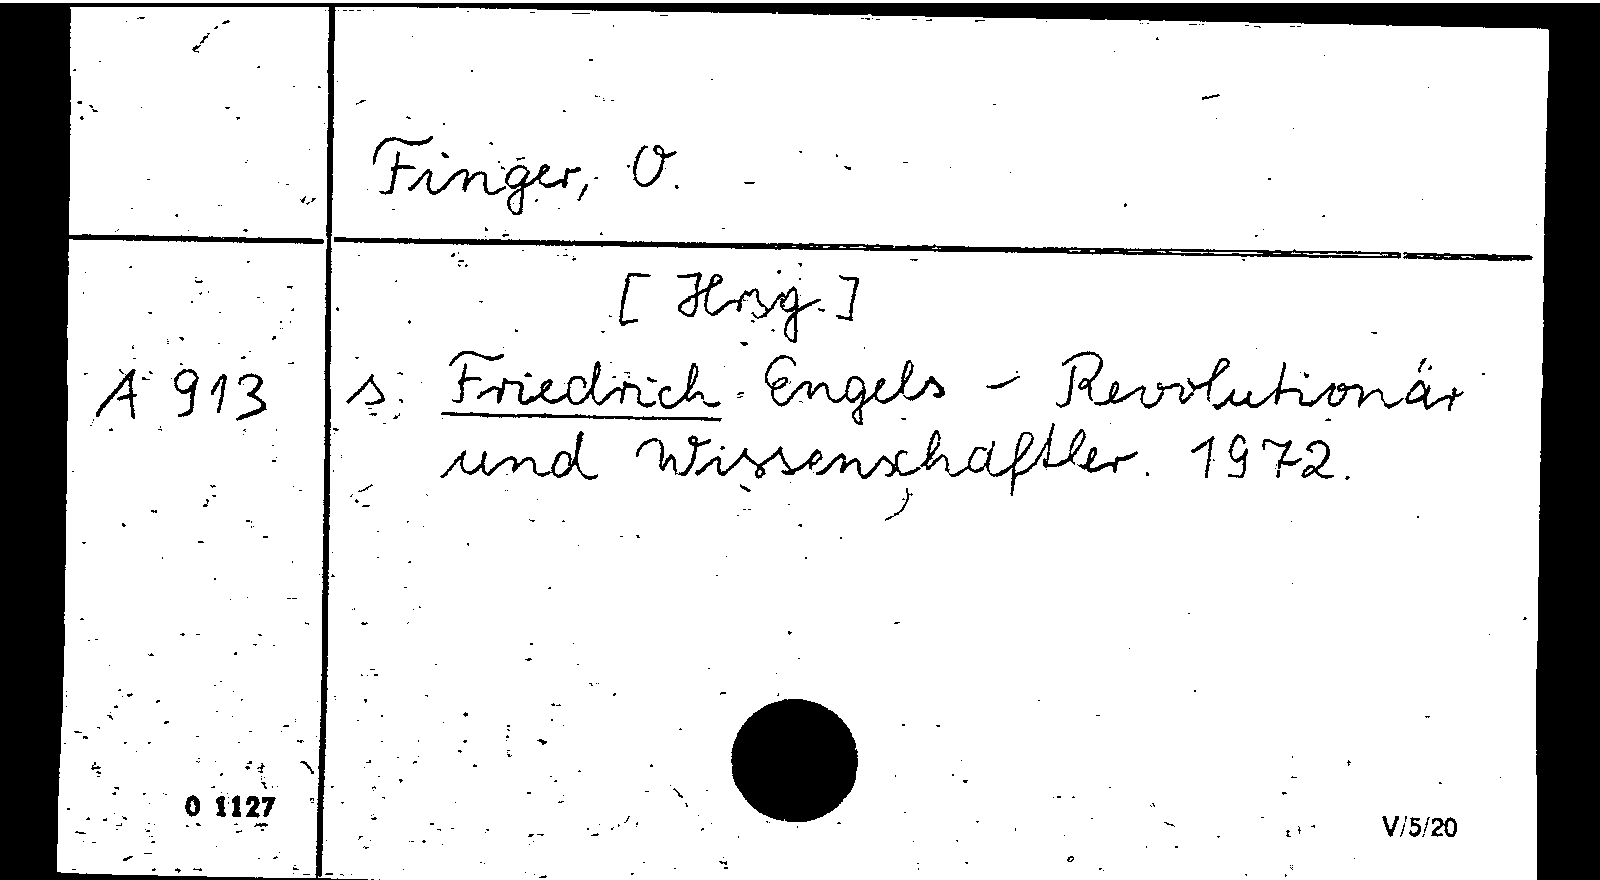 Finger, O.
[Hrsg.]
A 913 s. Friedrich Engels - Revolutionär
und Wissenschaftler. 1972.
0 1127
V/5/20